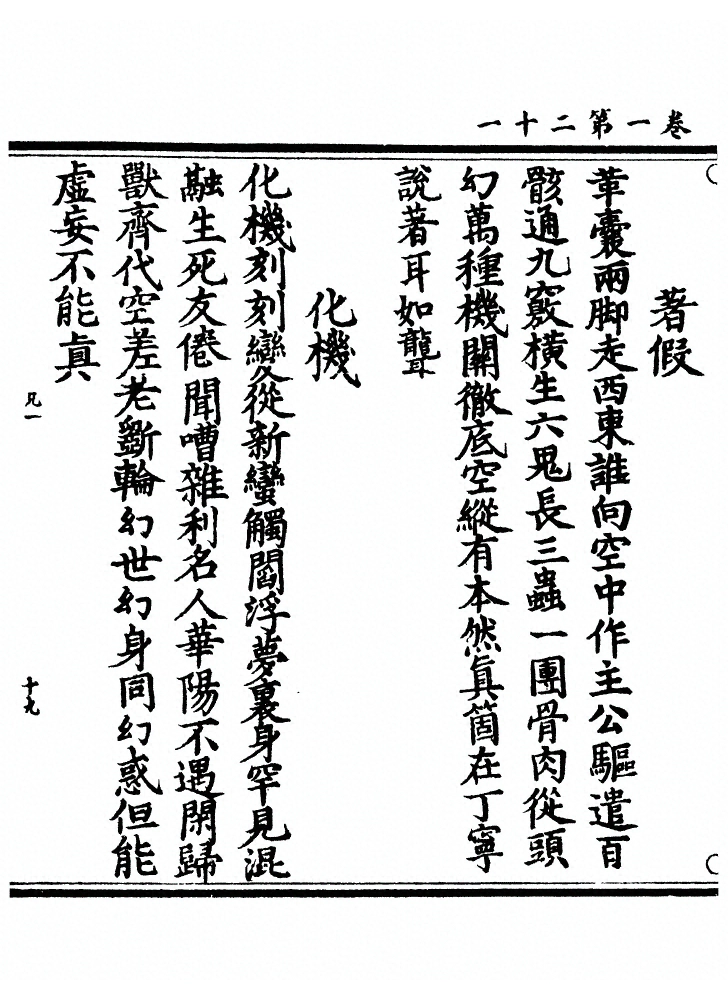 卷一第二十一
著假
革囊兩脚走西東誰向空中作主公驅遣百
骸通九竅橫生六鬼長三蟲一團骨肉從頭
幻萬種機關徹底空縱有本然眞箇在丁寧
說著耳如聾
化機
化機刻刻變從新蠻觸閻浮夢裏身罕見混
融生死友倦聞嘈雜利名人華陽不遇閑歸
獸齊代空差老斲輪幻世幻身同幻惑但能
虛妄不能眞
兄一
十九